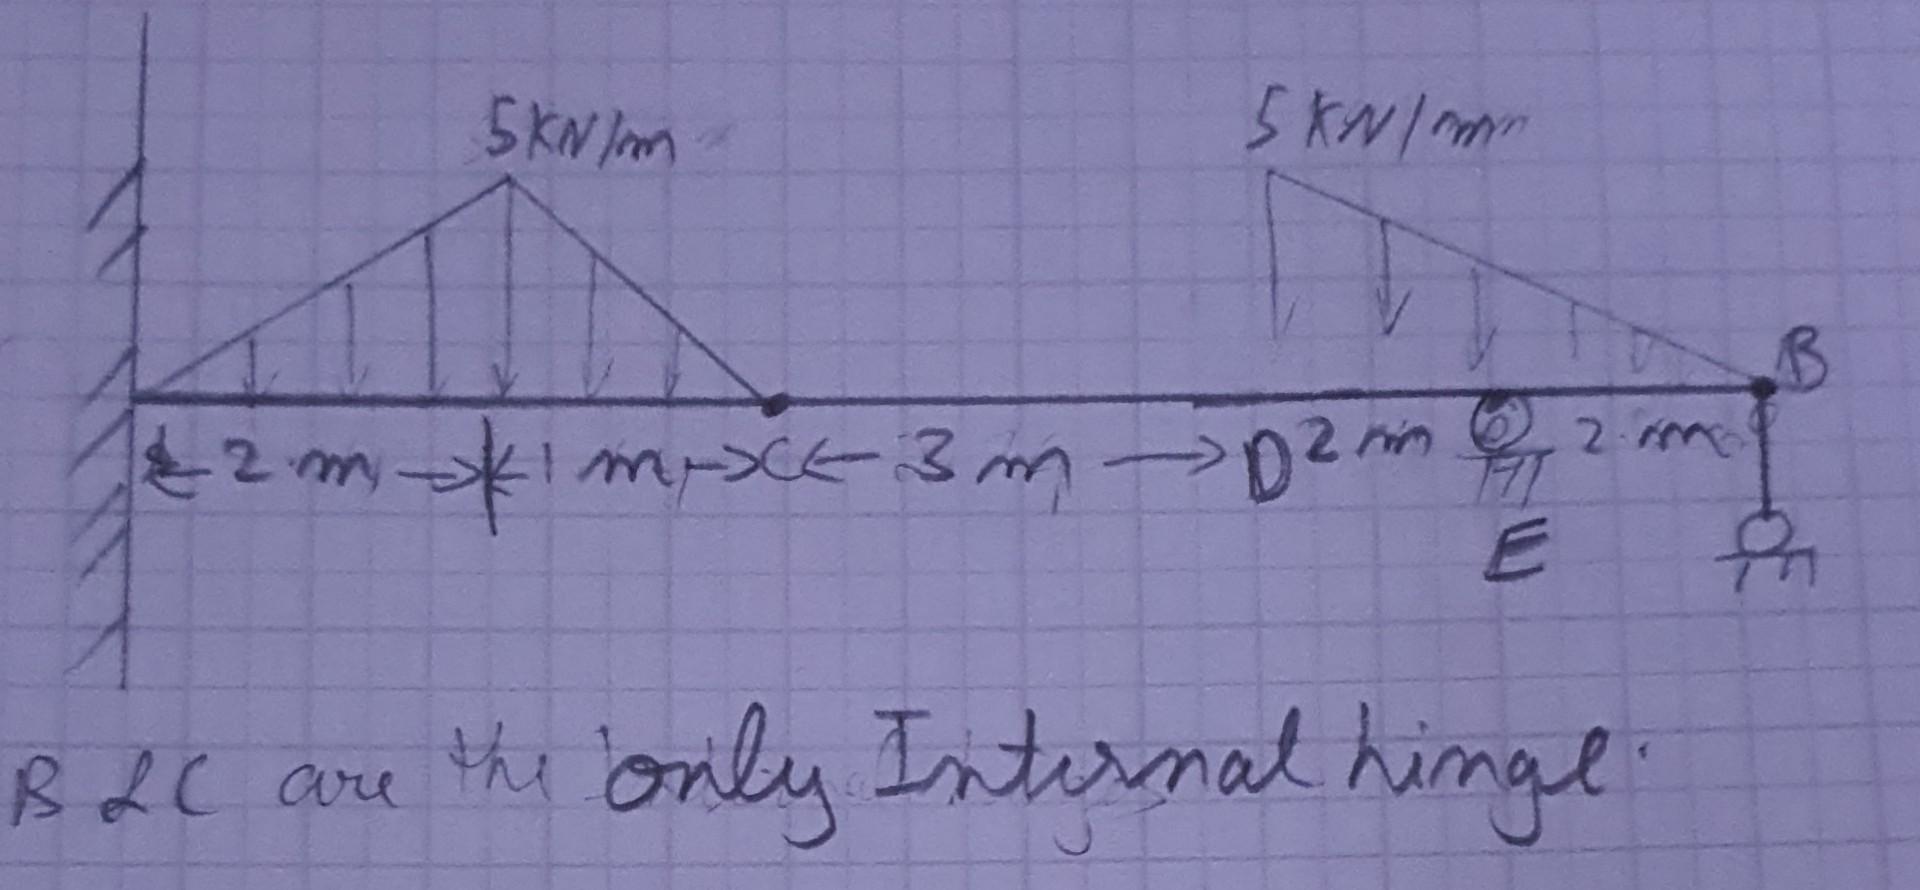 5KN/m 5KN/m
B
2 m 1 m C 3 m D 2 m 2 m
E
B & C are the only Internal hinge.